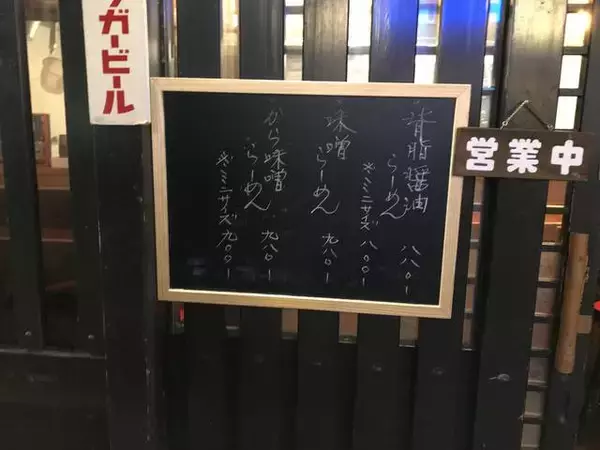 ・背脂醤油
らーめん 八八〇ー
※ミニサイズ 八〇〇ー
・味噌
らーめん 九八〇ー
・から味噌
らーめん 九八〇ー
※ミニサイズ 九〇〇ー
営業中
ガービール